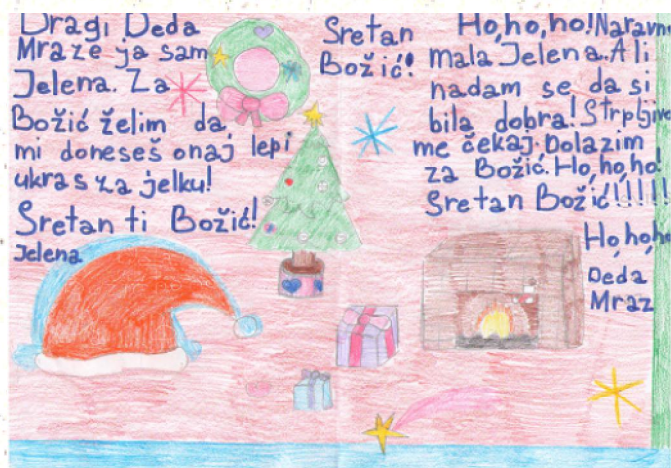 Dragi Deda
Mraze ja sam
Jelena. Za
Božić želim da
mi doneseš onaj lepi
ukras za jelku!
Sretan ti Božić!
Jelena
Sretan
Božić!
Ho, ho, ho! Naravno
mala Jelena. Ali
nadam se da si
bila dobra! Strpljivo
me čekaj. Dolazim
za Božić. Ho, ho, ho!
Sretan Božić!!!!!
Ho, ho, ho
Deda
Mraz